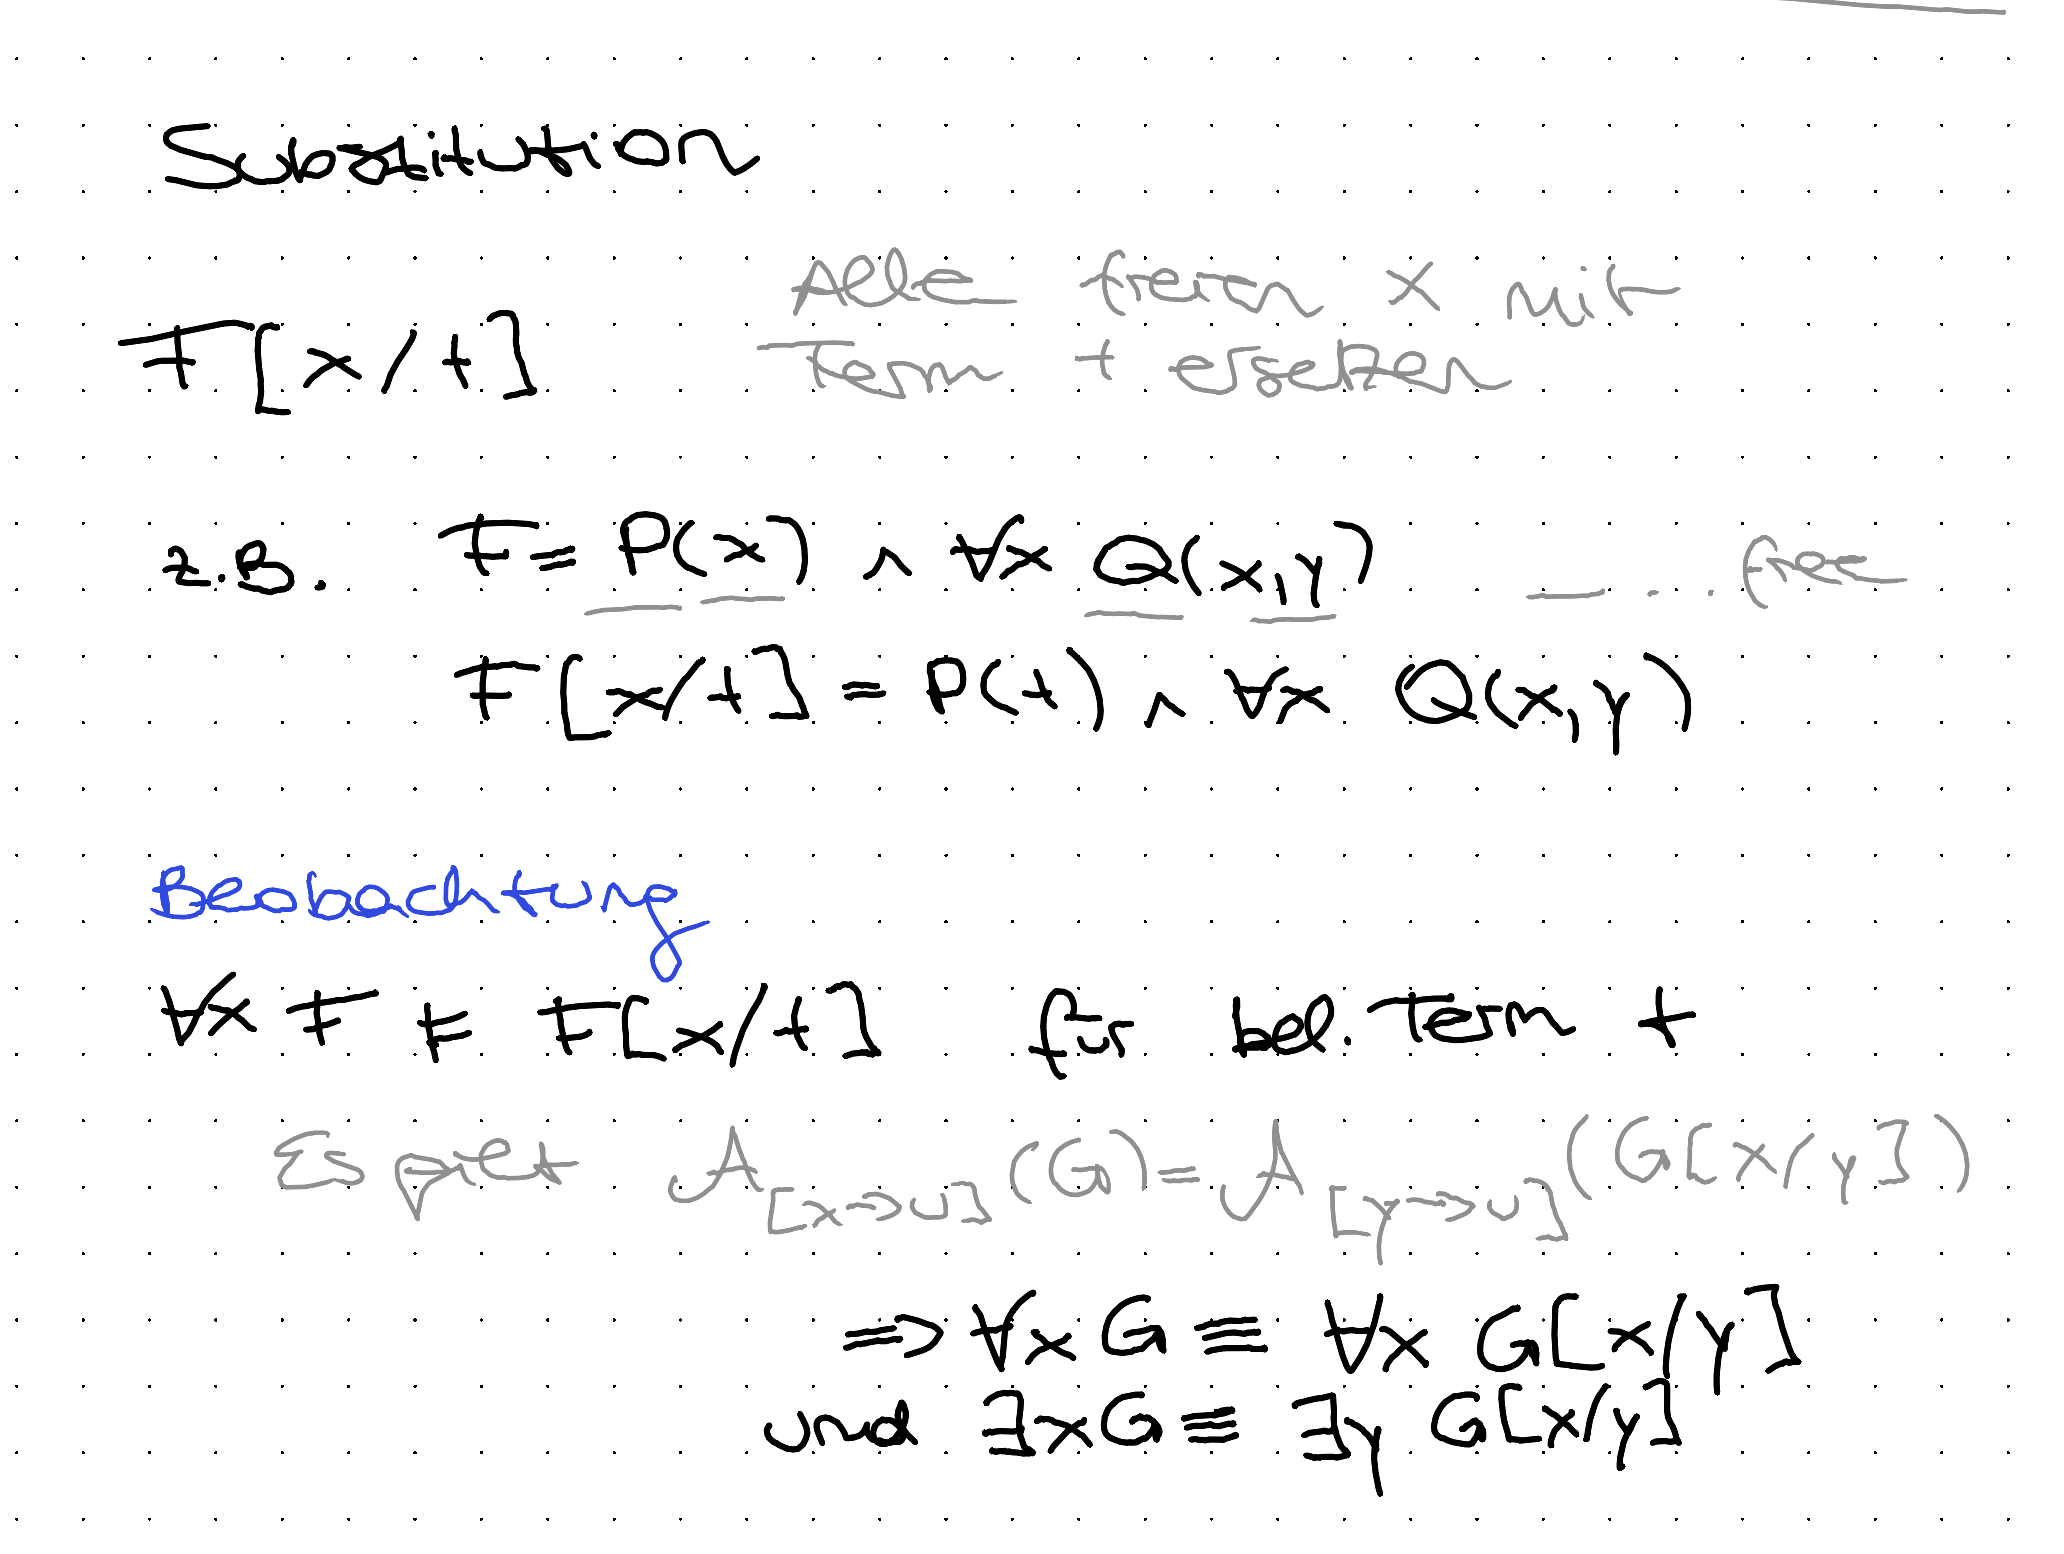 Substitution
Alle freien x mit
F[x/t] Term t ersetzen
z.B. F = P(x) ∧ ∀x Q(x,y) __ ... free
F[x/t] = P(t) ∧ ∀x Q(x,y)
Beobachtung
∀x F ⊨ F[x/t] für bel. Term t
Es gilt A[x→u](G) = A[y→u](G[x/y])
⇒ ∀x G ≡ ∀x G[x/y]
und ∃x G ≡ ∃y G[x/y]